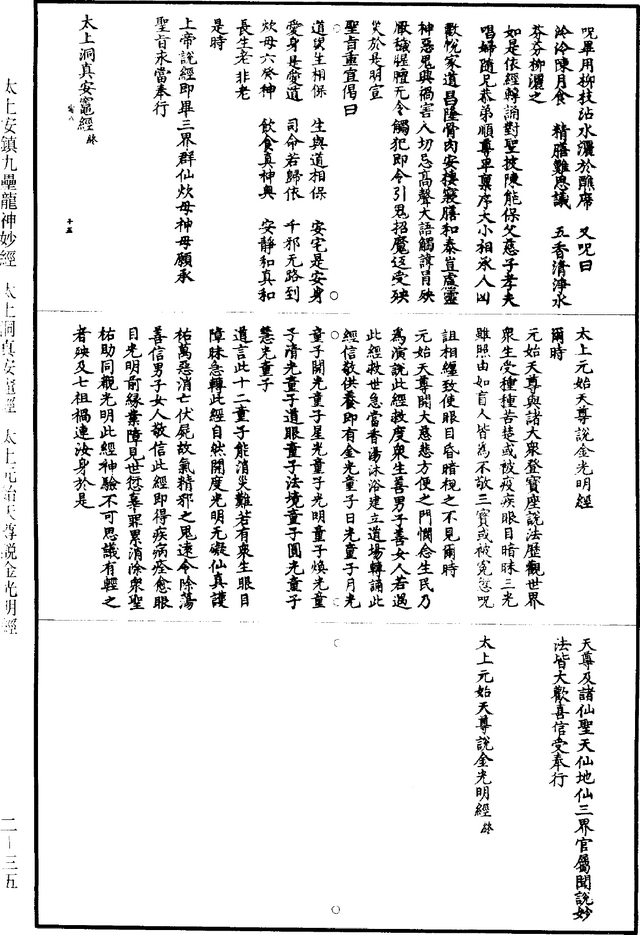 呪畢用柳枝沾水灑於醮席　又呪曰
泠泠陳月食　精膳難思議　五香清淨水
芬芬柳灑之
如是依經轉誦對聖披陳能保父慈子孝夫
唱婦隨兄恭弟順尊卑稟序大小相承人凶
歡悅家道昌隆骨肉安棲寢膳和泰豈慮靈
神惡鬼興禍害人切忌高聲大語觸諱冒殃
厭穢腥膻无令觸犯即令引鬼招魔迳受殃
災於是明宣
聖旨重宣偈曰
道與生相保　生與道相保　安宅是安身
愛身是愛道　司命若歸依　千邪无路到
炊母六癸神　飲食真神與　安靜和真和
長生老非老
是時
上帝說經即畢三界群仙炊母神母願承
聖旨永當奉行
太上洞真安竈經
十五
太上元始天尊說金光明經
爾時
元始天尊與諸大衆登寶座說法歷觀世界
衆生受種種苦楚或被疫疾眼目暗昧三光
雖照由如盲人皆為不敬三寶或被寃愆呪
詛相纏致使眼目昏暗視之不見爾時
元始天尊開大慈悲方便之門憫念生民乃
為演說此經救度衆生善男子善女人若遇
此經救世急當香湯沐浴建立道場轉誦此
經信敬供養即有金光童子日光童子月光
童子開光童子星光童子光明童子煥光童
子清光童子道眼童子法境童子圓光童子
慧光童子
道言此十二童子能消災難若有衆生眼目
障昧急轉此經自然開度光明无礙仙真護
祐萬惡消亡伏屍故氣精邪之鬼速令除蕩
善信男子女人敬信此經即得疾病痊愈眼
目光明前緣業障見世愆辜罪累消除衆聖
祐助同觀光明此經神驗不可思議有輕之
者殃及七祖禍連汝身於是
天尊及諸仙聖天仙地仙三界官屬聞說妙
法皆大歡喜信受奉行
太上元始天尊說金光明經
太上安鎮九壘龍神妙經　太上洞真安竈經　太上元始天尊說金光明經
二—三五